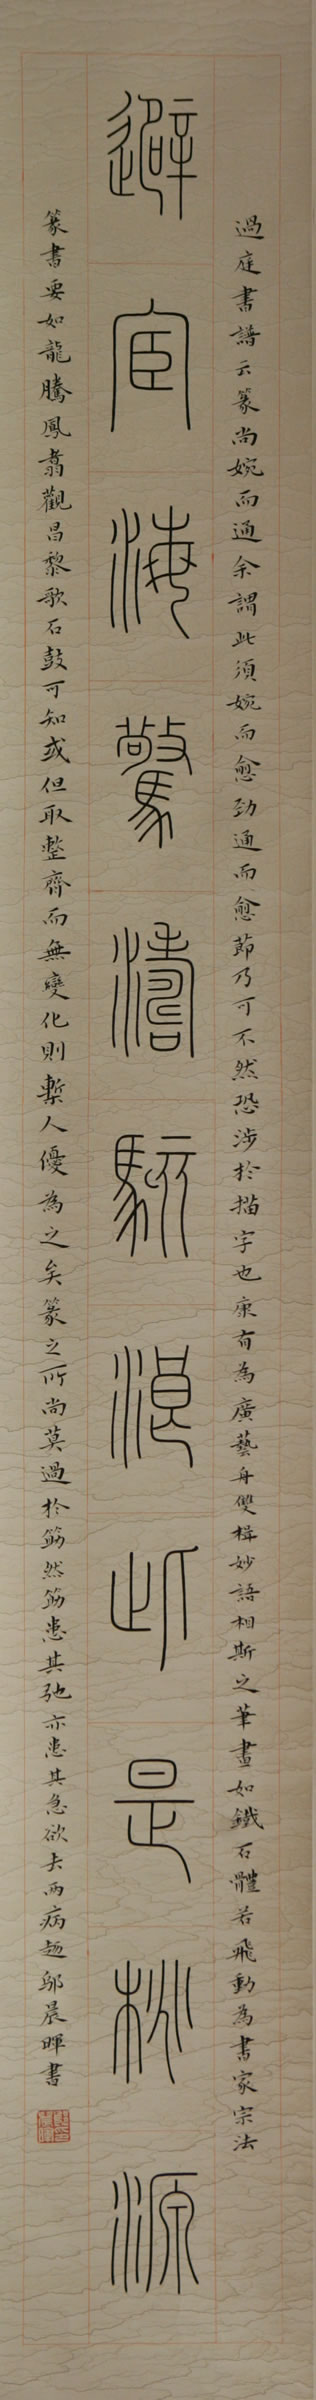 過庭書譜云篆尚婉而通余謂此須婉而愈勁通而愈節乃可不然恐涉於描字也康有為廣藝舟雙楫妙語相斯之筆畫如鐵石體若飛動為書家宗法
避宦海驚濤駭浪此是桃源
篆書要如龍騰鳳翥觀昌黎歌石鼓可知或但取整齊而無變化則槧人優為之矣篆之所尚莫過於筋然筋患其弛亦患其急欲去兩病鄔晨暉書